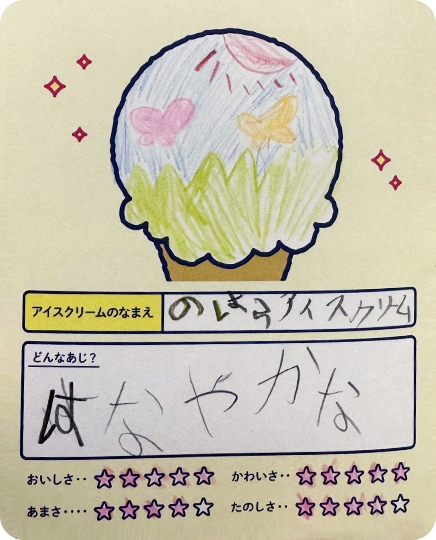 アイスクリームのなまえ
のはらアイスクリーム
どんなあじ？
はなやかな
おいしさ‥ ★★★★★
かわいさ‥ ★★★★★
あまさ‥‥ ★★★★☆
たのしさ‥ ★★★★☆